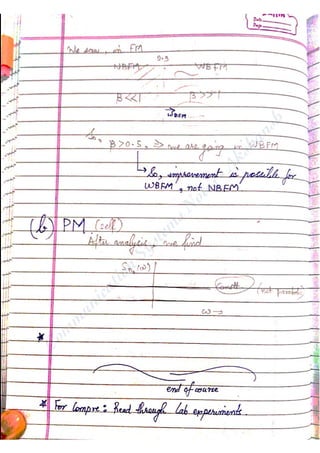 Date
Page
We saw, in FM
0.5
NBFM WBFM
β<<1 β>>1
So, β>0.5, ⇒ we are going in WBFM
↳ So, improvement is possible for
WBFM, not NBFM.
(b) PM (self)
After analysis, we find
(ω)
const. (not parabola)
ω→
*
end of course
* For Compre: Read through Lab experiments.
Communication Systems